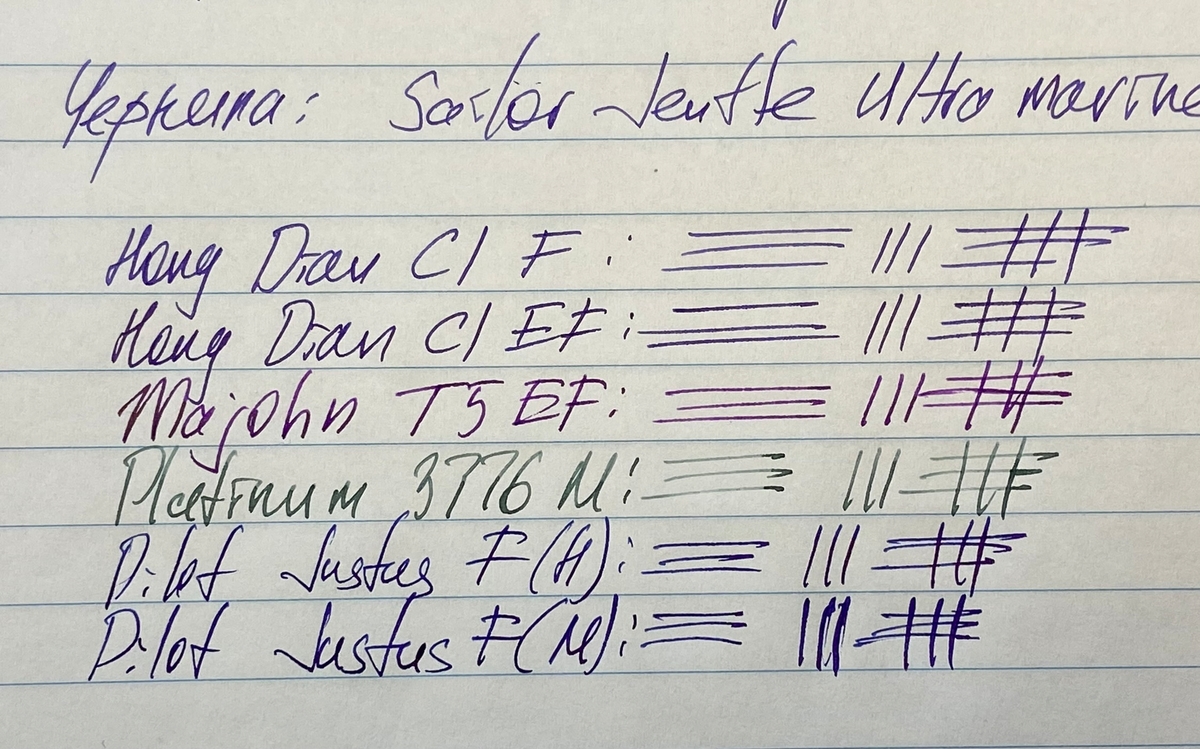 Чернила: Sailor Jentle Ultra marine
Hong Dian C1 F :
Hong Dian C1 EF :
Majohn T5 EF :
Platinum 3776 M :
Pilot Justus F (H) :
Pilot Justus F (M) :